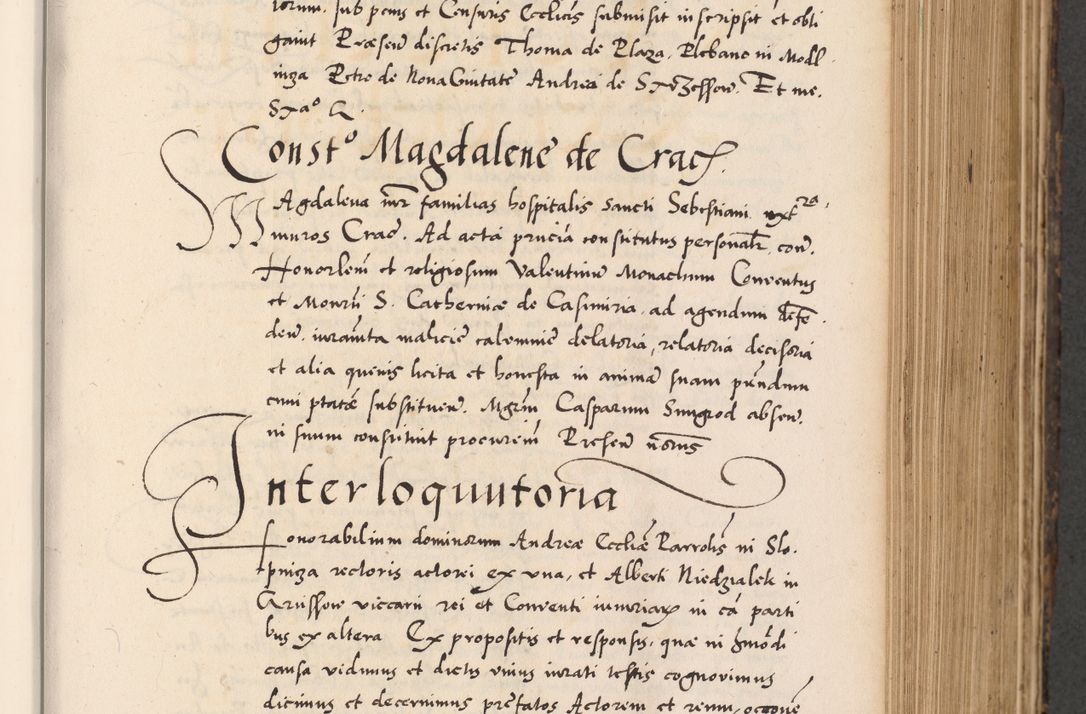 iorum. sub penis et Censuris Ecclicis submisit inscripsit et obli
gauit Presen discretis Thoma de Plaza, Plebano in Modl
nicza Petro de Noua Ciuitate Andrea de Et me.
Const⁰ Magdalene de Crac
Magdalena mr familias hospitalis Sancti Sebestiani extra
muros Crac. Ad acta pncia constitutus personalr, con.
Honorlem et religiosum Valentinum Monachum Conuentus
et Monrii S. Catherinæ de Casimiria, ad agendum defe
den. iuramta malicie calumnie delatoria, relatoria decisoria
et alia queuis licita et honesta in animam suam prndum
cum ptate substituen. Mgrm Casparum absen.
in suum constituit procurem Presen
Interloquutoria
Honorabilium dominorum Andreæ Eccliæ Parrolis in Slo.
pnicza rectoris actorei ex vna, et Alberti Niedzialek in
viccarii rei et Conuenti iniuriar in ca parti
bus ex altera Ex propositis et responsis, quæ in hmodi
causa vidimus et dictis vnius iurati testis cognouimus
dicimus et decernimus prefatos Actorem et reum,